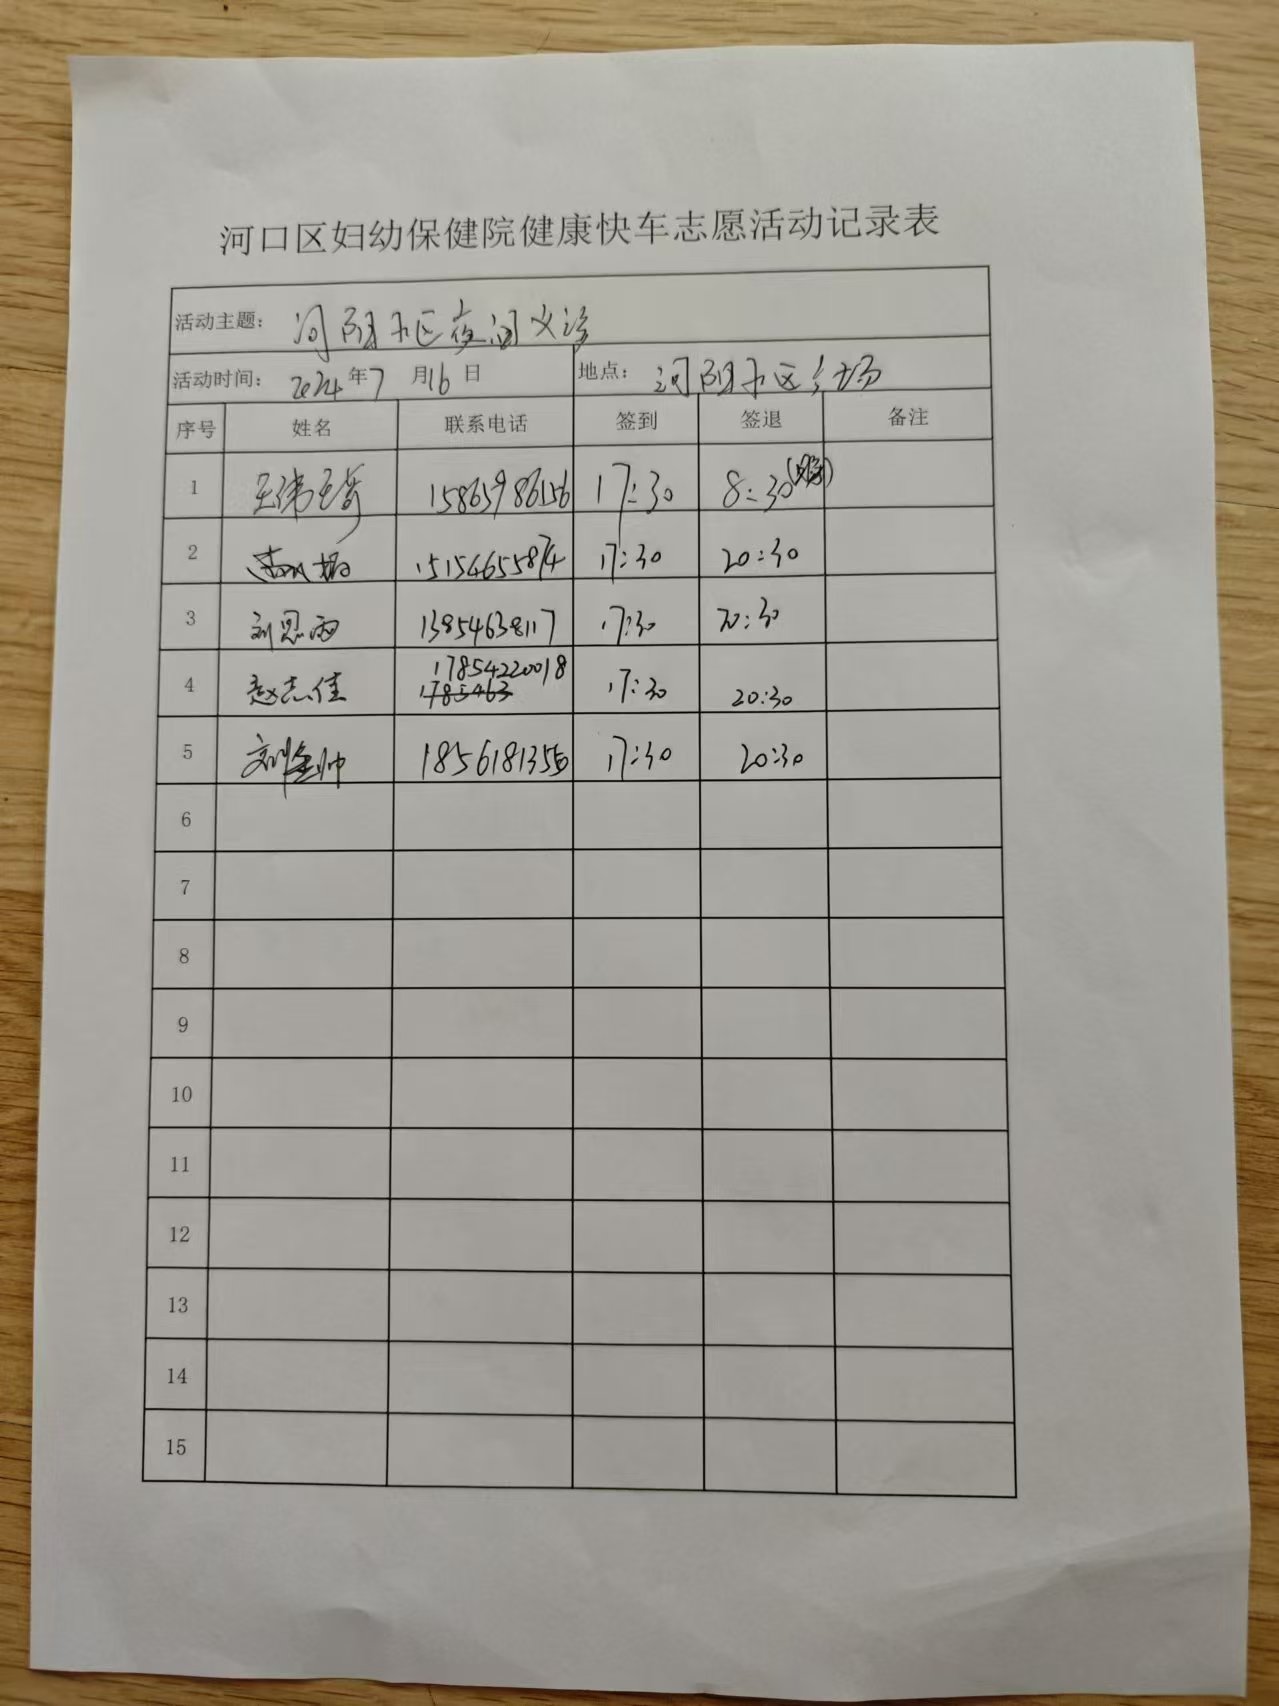 河口区妇幼保健院健康快车志愿活动记录表
活动主题： 河阳社区夜间义诊
活动时间： 2024年7月16日 地点： 河阳社区广场
序号 姓名 联系电话 签到 签退 备注
1 15865986156 17:30 8:30
2 15154655874 17:30 20:30
3 刘思雨 13854638117 17:30 20:30
4 赵志佳 17854220018 1785463 17:30 20:30
5 刘金帅 17:30 20:30
6
7
8
9
10
11
12
13
14
15